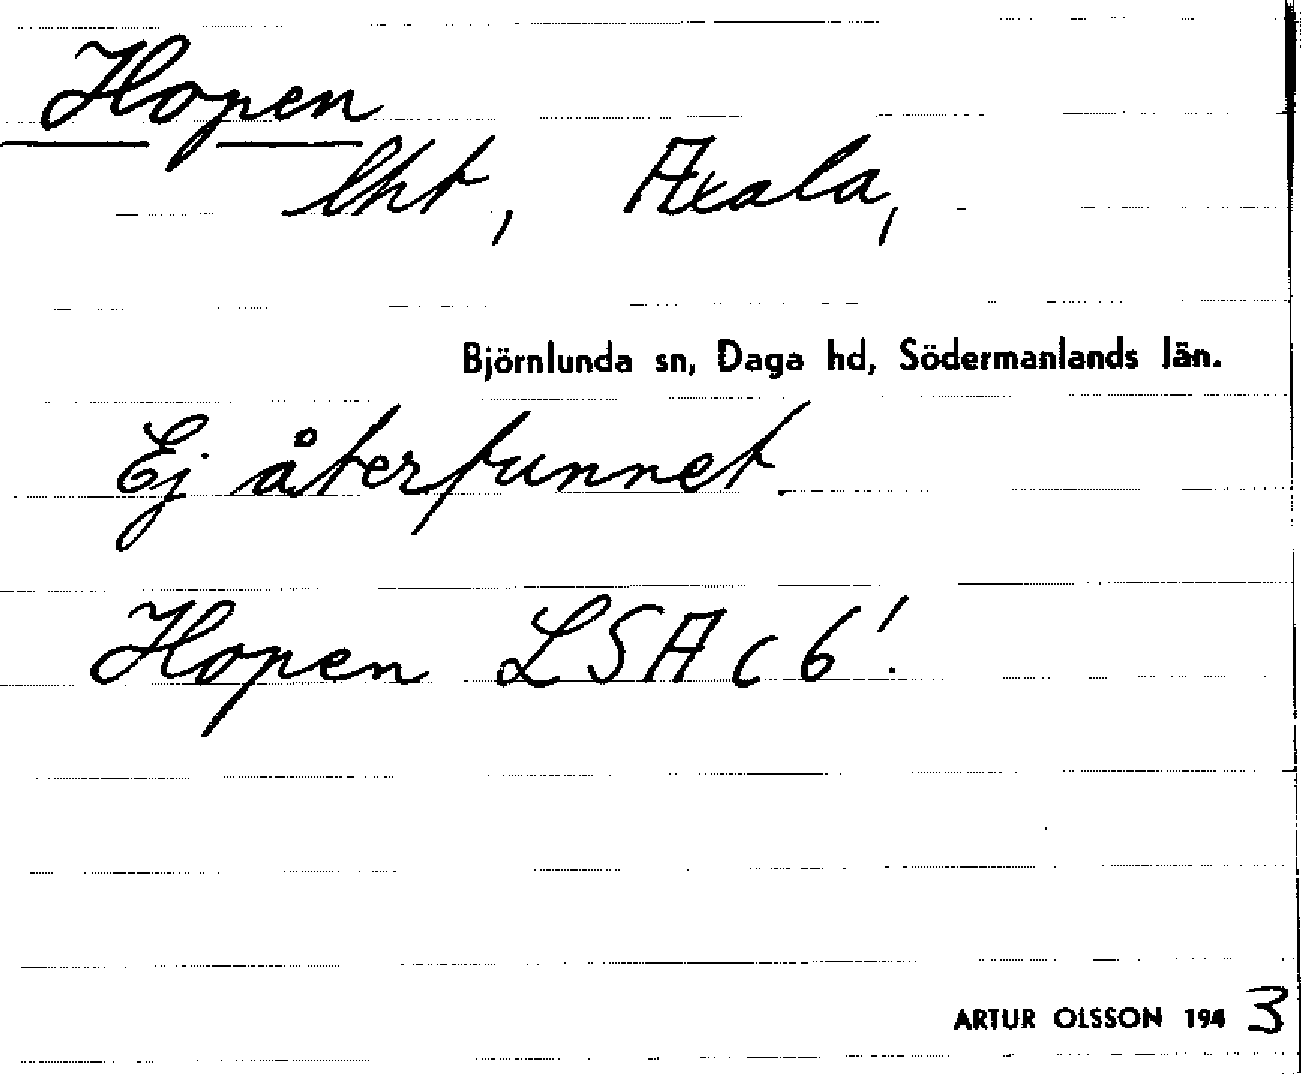 Hopen
lht, Axala,
Björnlunda sn, Daga hd, Södermanlands län.
Ej återfunnet.
Hopen LSA c 6!
ARTUR OLSSON 1943